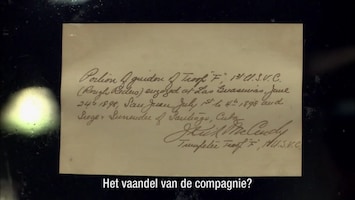 Portion of guidon of Troop "F", 1st U.S.V.C.
(Rough Riders) engaged at Las Guasimas, June
24th 1898, San Juan, July 1st to 4th 1898 and
Siege & Surrender of Santiago, Cuba.
McCurdy
Trumpeter Troop "F", 1st U.S.V.C.
Het vaandel van de compagnie?